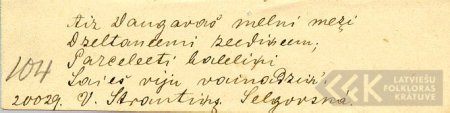 Aiz Daugavas melni meži
Dzeltaneemi zeedineem;
Parceleeti baleliņi
Lai es viju vainadziņ
104
20029. V. Strantiņ, Selgovskā.
LATVIEŠU
FOLKLORAS
KRĀTUVE